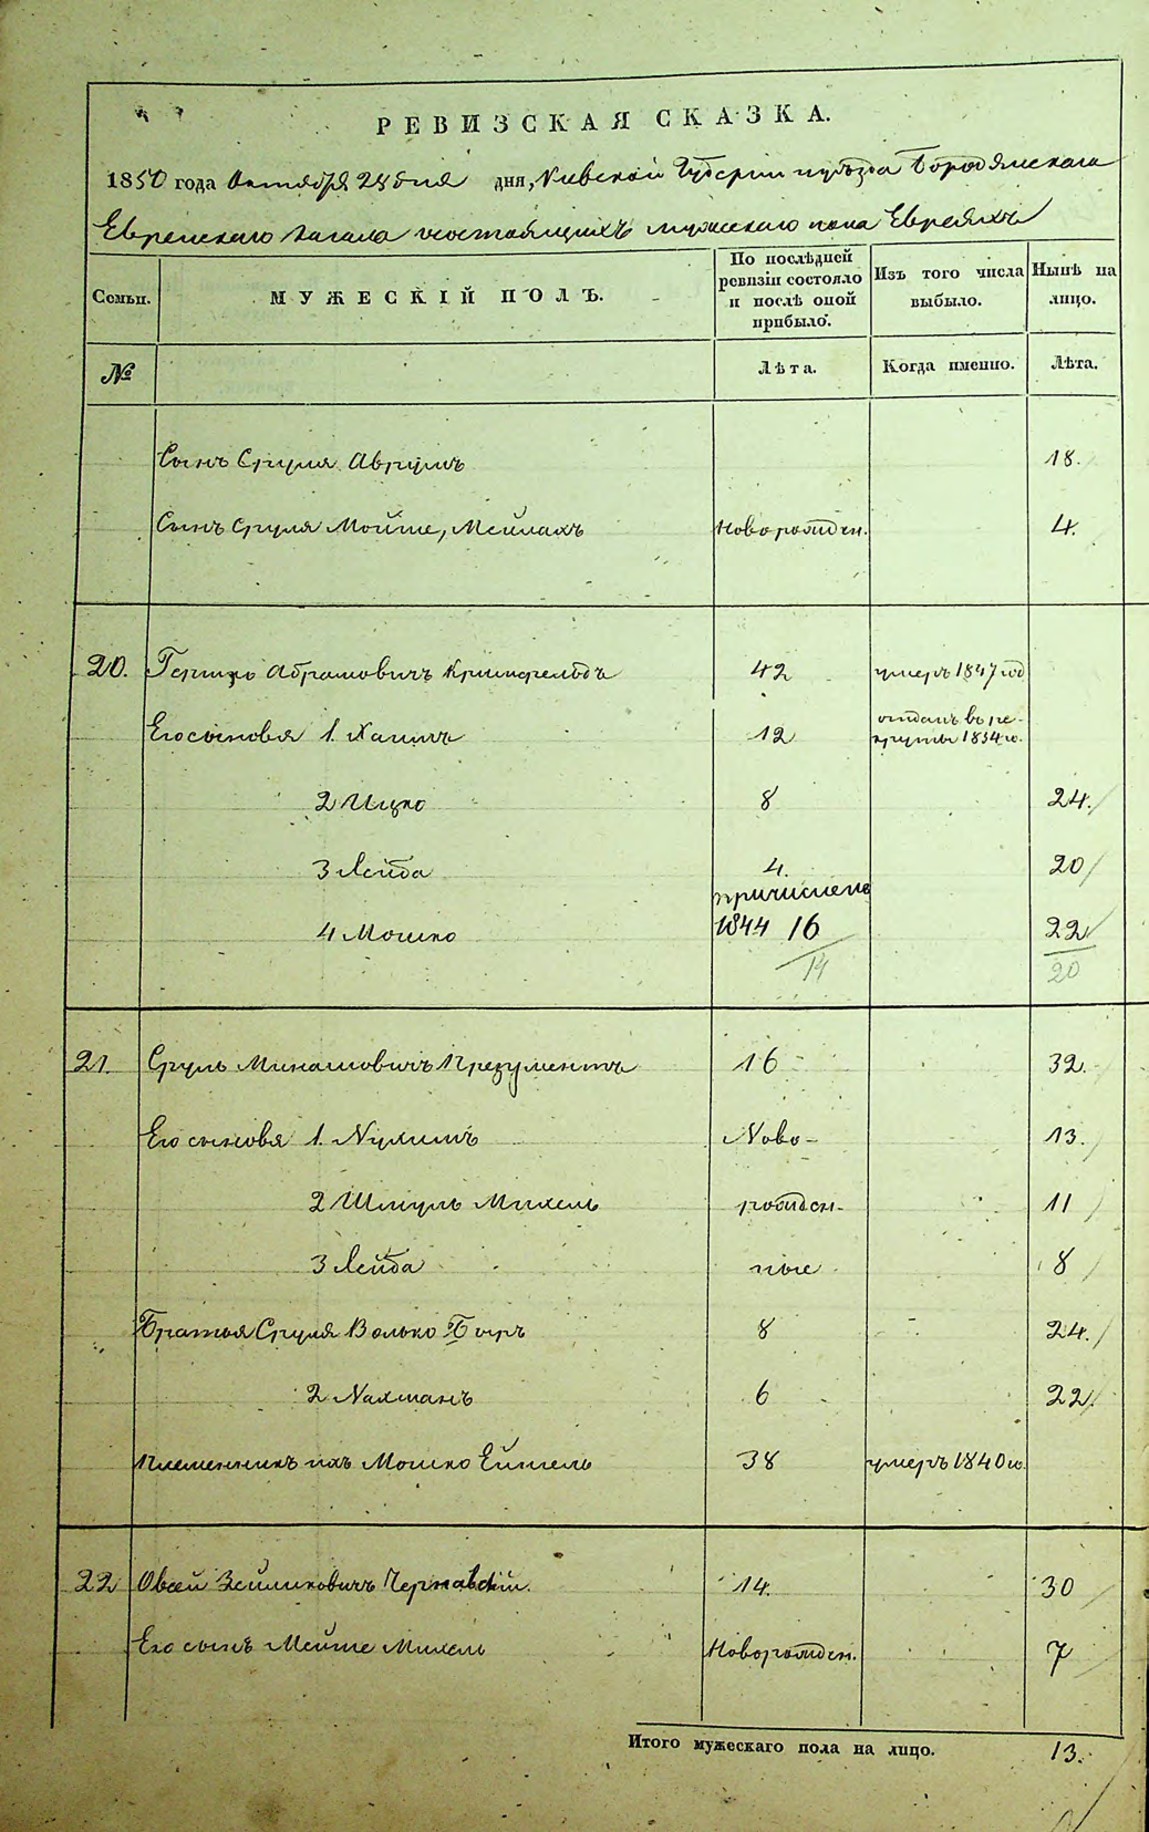 РЕВИЗСКАЯ СКАЗКА.
1850 года Октября 28 дня дня, Киевской Губернии и уѣзда Бородянскаго
Еврейскаго Кагала состоящихъ мужескаго пола Евреяхъ
Семьи. МУЖЕСКІЙ ПОЛЪ. По послѣдней ревизіи состояло и послѣ оной прибыло. Изъ того числа выбыло. Нынѣ на лицо.
№ Лѣта. Когда именно. Лѣта.
Сынъ Сруля Аврумъ 18.
Сынъ Сруля Мойше, Мейлахъ Новорожден. 4.
20. Гершко Абрамовичъ 42 умеръ 1847 год
Его сыновья 1. Хаимъ 12 отданъ въ рекруты 1834 го.
2 Ицко 8 24.
3 Лейба 4. 20
причислено
4 Мошко 1844 16 22
14 20
21. Сруль Минашовичъ Презументъ 16 32.
Его сыновья 1. Нухимъ Ново- 13.
2 Шмуль Михель рожден- 11
3 Лейба ные 8
Братья Сруля Волько Беръ 8 24.
2 Нахманъ 6 22.
Племенникъ ихъ Мошко 38 умеръ 1840 го.
22 Овсей Зейликовичъ Чернавскій. 14. 30
Его сынъ Мойше Михель Новорожден. 7
Итого мужескаго пола на лицо. 13.